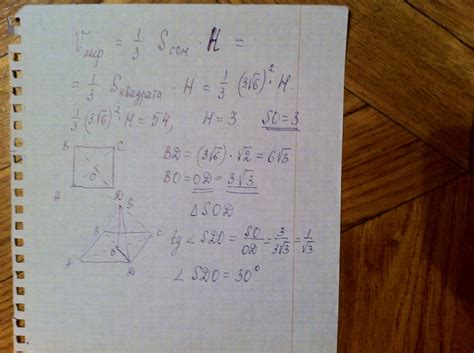 V пир = 1/3 S осн · H =
= 1/3 S квадрата · H = 1/3 (3√6)² · H.
1/3 (3√6)² · H = 54, H = 3 SO = 3
B C
O
A D
BD = (3√6) · √2 = 6√3
BO = OD = 3√3
S
B C
O
A D
△SOD
tg ∠SDO = SO/OD = 3/3√3 = 1/√3
∠SDO = 30°